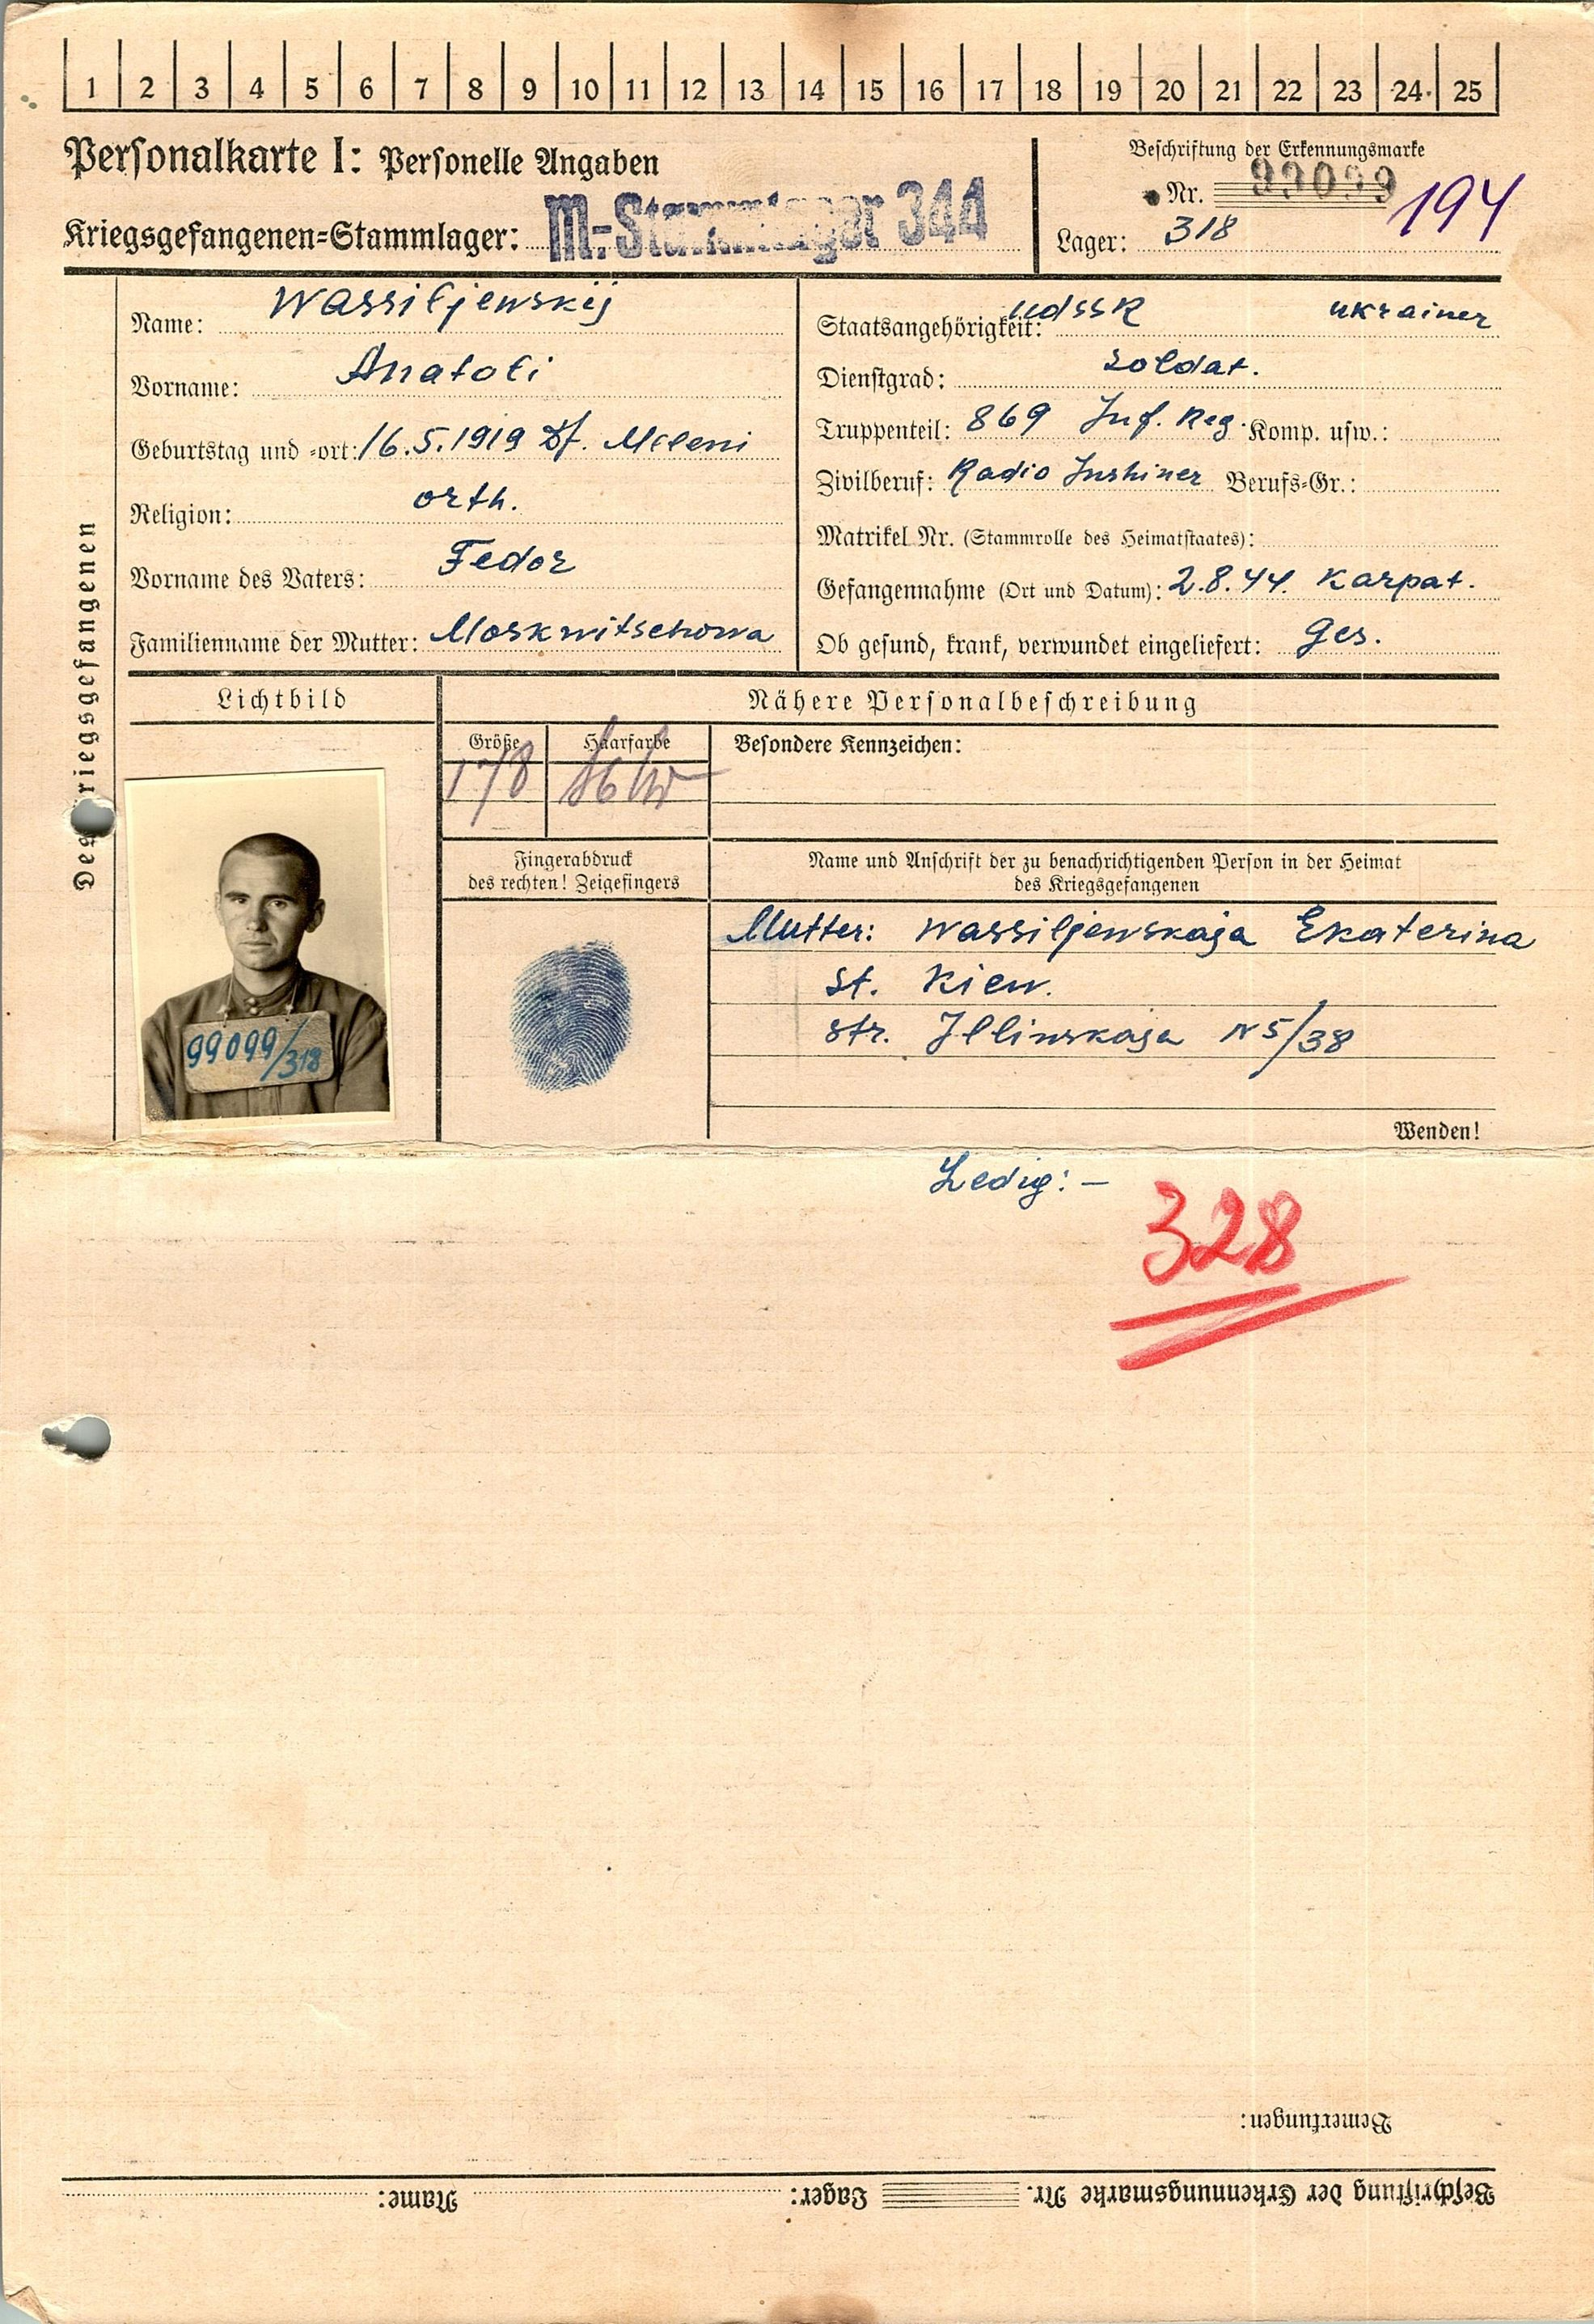 1 2 3 4 5 6 7 8 9 10 11 12 13 14 15 16 17 18 19 20 21 22 23 24 25
Personalkarte I: Personelle Angaben
Kriegsgefangenen-Stammlager: M.-Stammlager 344
Beschriftung der Erkennungsmarke
Nr. 99099 194
Lager: 318
Des Kriegsgefangenen
Name: Wassiljewskij
Vorname: Anatoli
Geburtstag und -ort: 16.5.1919 Df. Mileni
Religion: orth.
Vorname des Vaters: Fedor
Familienname der Mutter: Moskwitschowa
Staatsangehörigkeit: UdSSR Ukrainer
Dienstgrad: Soldat.
Truppenteil: 869 Inf. Reg. Komp. usw.:
Zivilberuf: Radio Inshiner Berufs-Gr.:
Matrikel Nr. (Stammrolle des Heimatstaates):
Gefangennahme (Ort und Datum): 2.8.44. Karpat.
Ob gesund, krank, verwundet eingeliefert: Ges.
Lichtbild
Nähere Personalbeschreibung
Größe Haarfarbe Besondere Kennzeichen:
178
Fingerabdruck
des rechten! Zeigefingers
Name und Anschrift der zu benachrichtigenden Person in der Heimat
des Kriegsgefangenen
99099/318
Mutter: Wassiljewskaja Ekaterina
St. Kiew.
Str. Illinskaja N 5/38
Wenden!
Ledig: –
328
Bemerkungen:
Beschriftung der Erkennungsmarke Nr. Lager: Name: